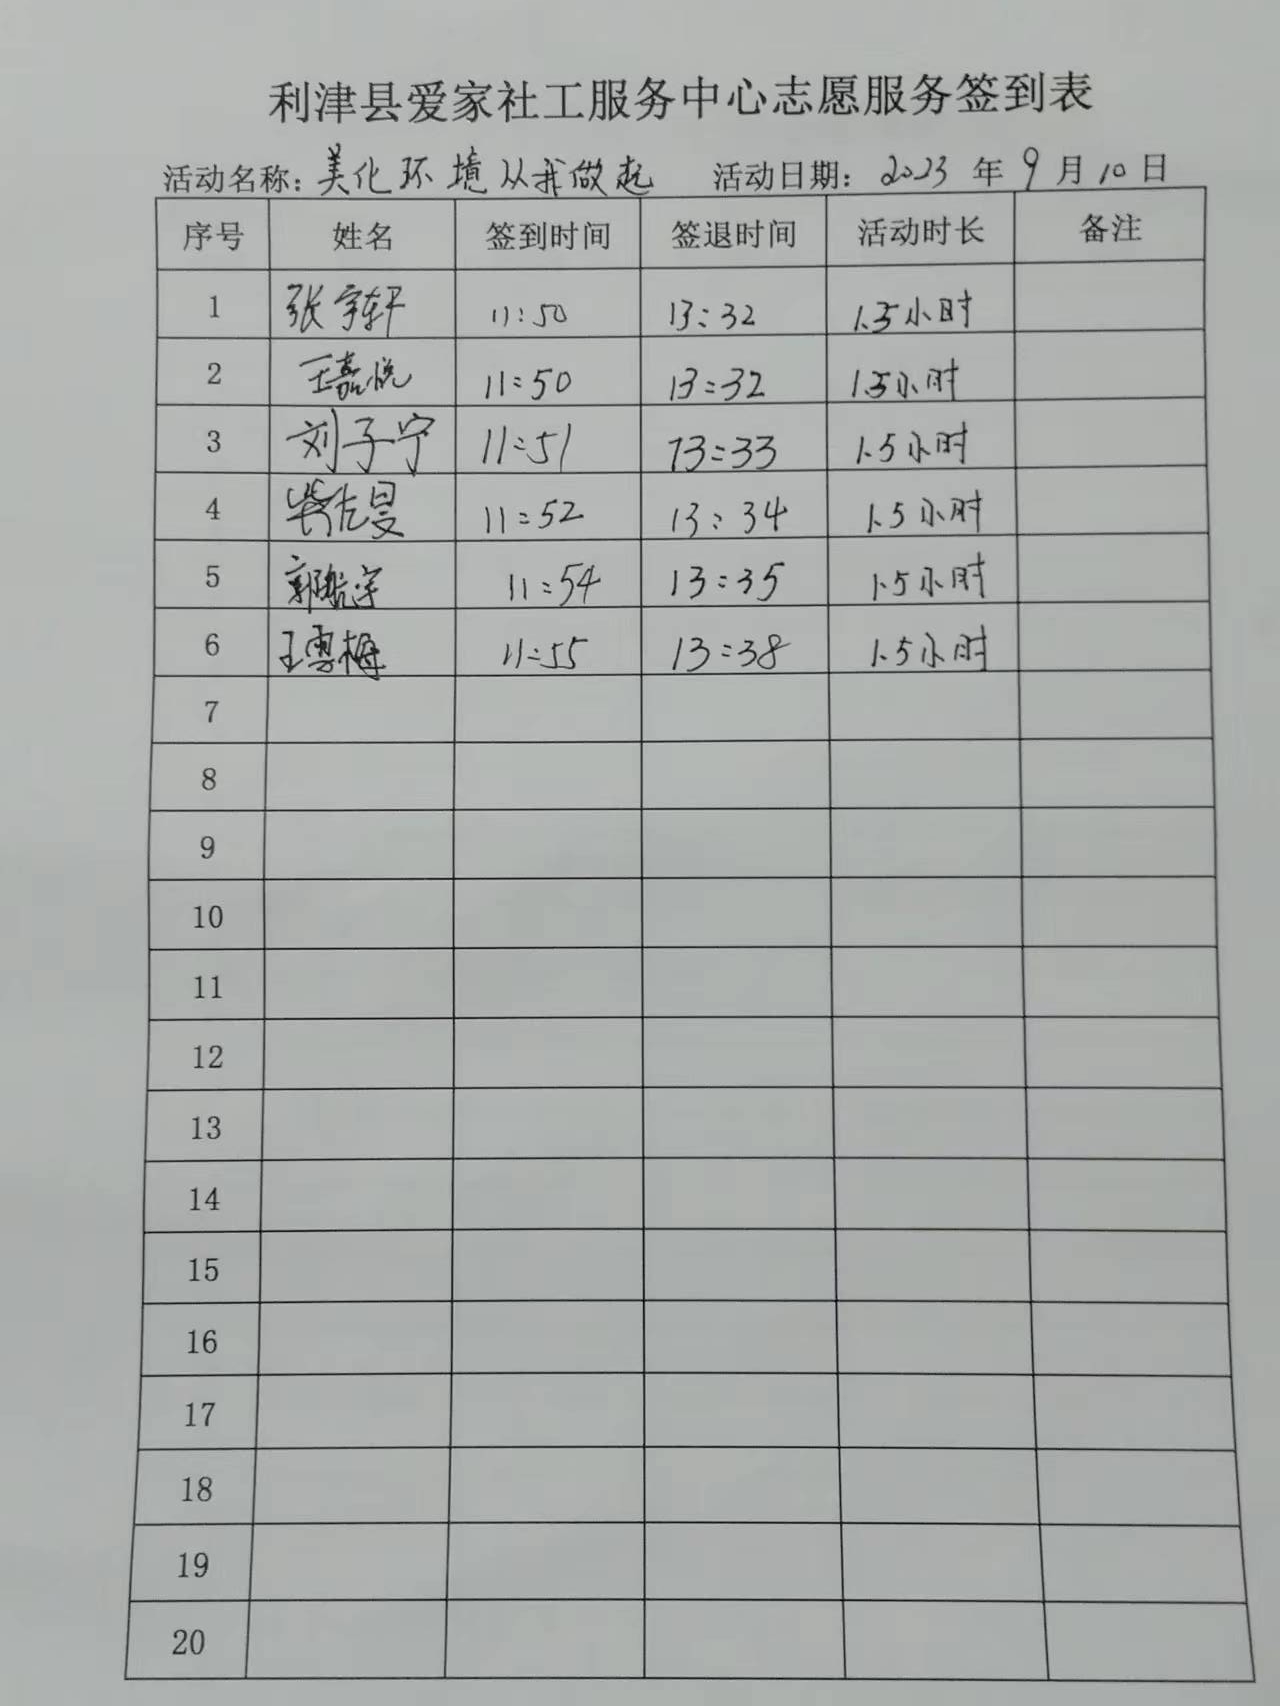 利津县爱家社工服务中心志愿服务签到表
活动名称：美化环境从我做起 活动日期：2023年9月10日
序号 姓名 签到时间 签退时间 活动时长 备注
1 张宇轩 11:50 13:32 1.5小时
2 王嘉悦 11:50 13:32 1.5小时
3 刘子宁 11:51 13:33 1.5小时
4 11:52 13:34 1.5小时
5 11:54 13:35 1.5小时
6 王雪梅 11:55 13:38 1.5小时
7
8
9
10
11
12
13
14
15
16
17
18
19
20